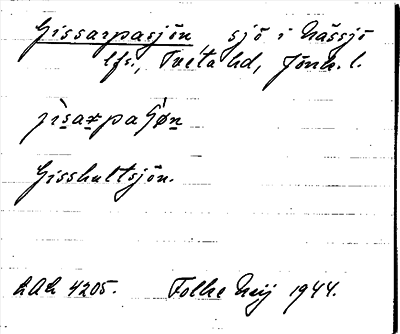 Gissarpasjön sjö i Nässjö
lfs., Tveta hd, Jönk. l.
jìsarpaʃön
Gisshultsjön.
LAL 4205. Folke Neij 1944.